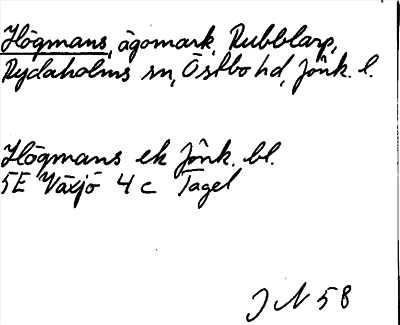 Högmans, ägomark, Rubblarp,
Rydaholms sn, Östbo hd, Jönk. l.
Högmans ek Jönk. bl.
5E Växjö 4 c Tagel
J N 58